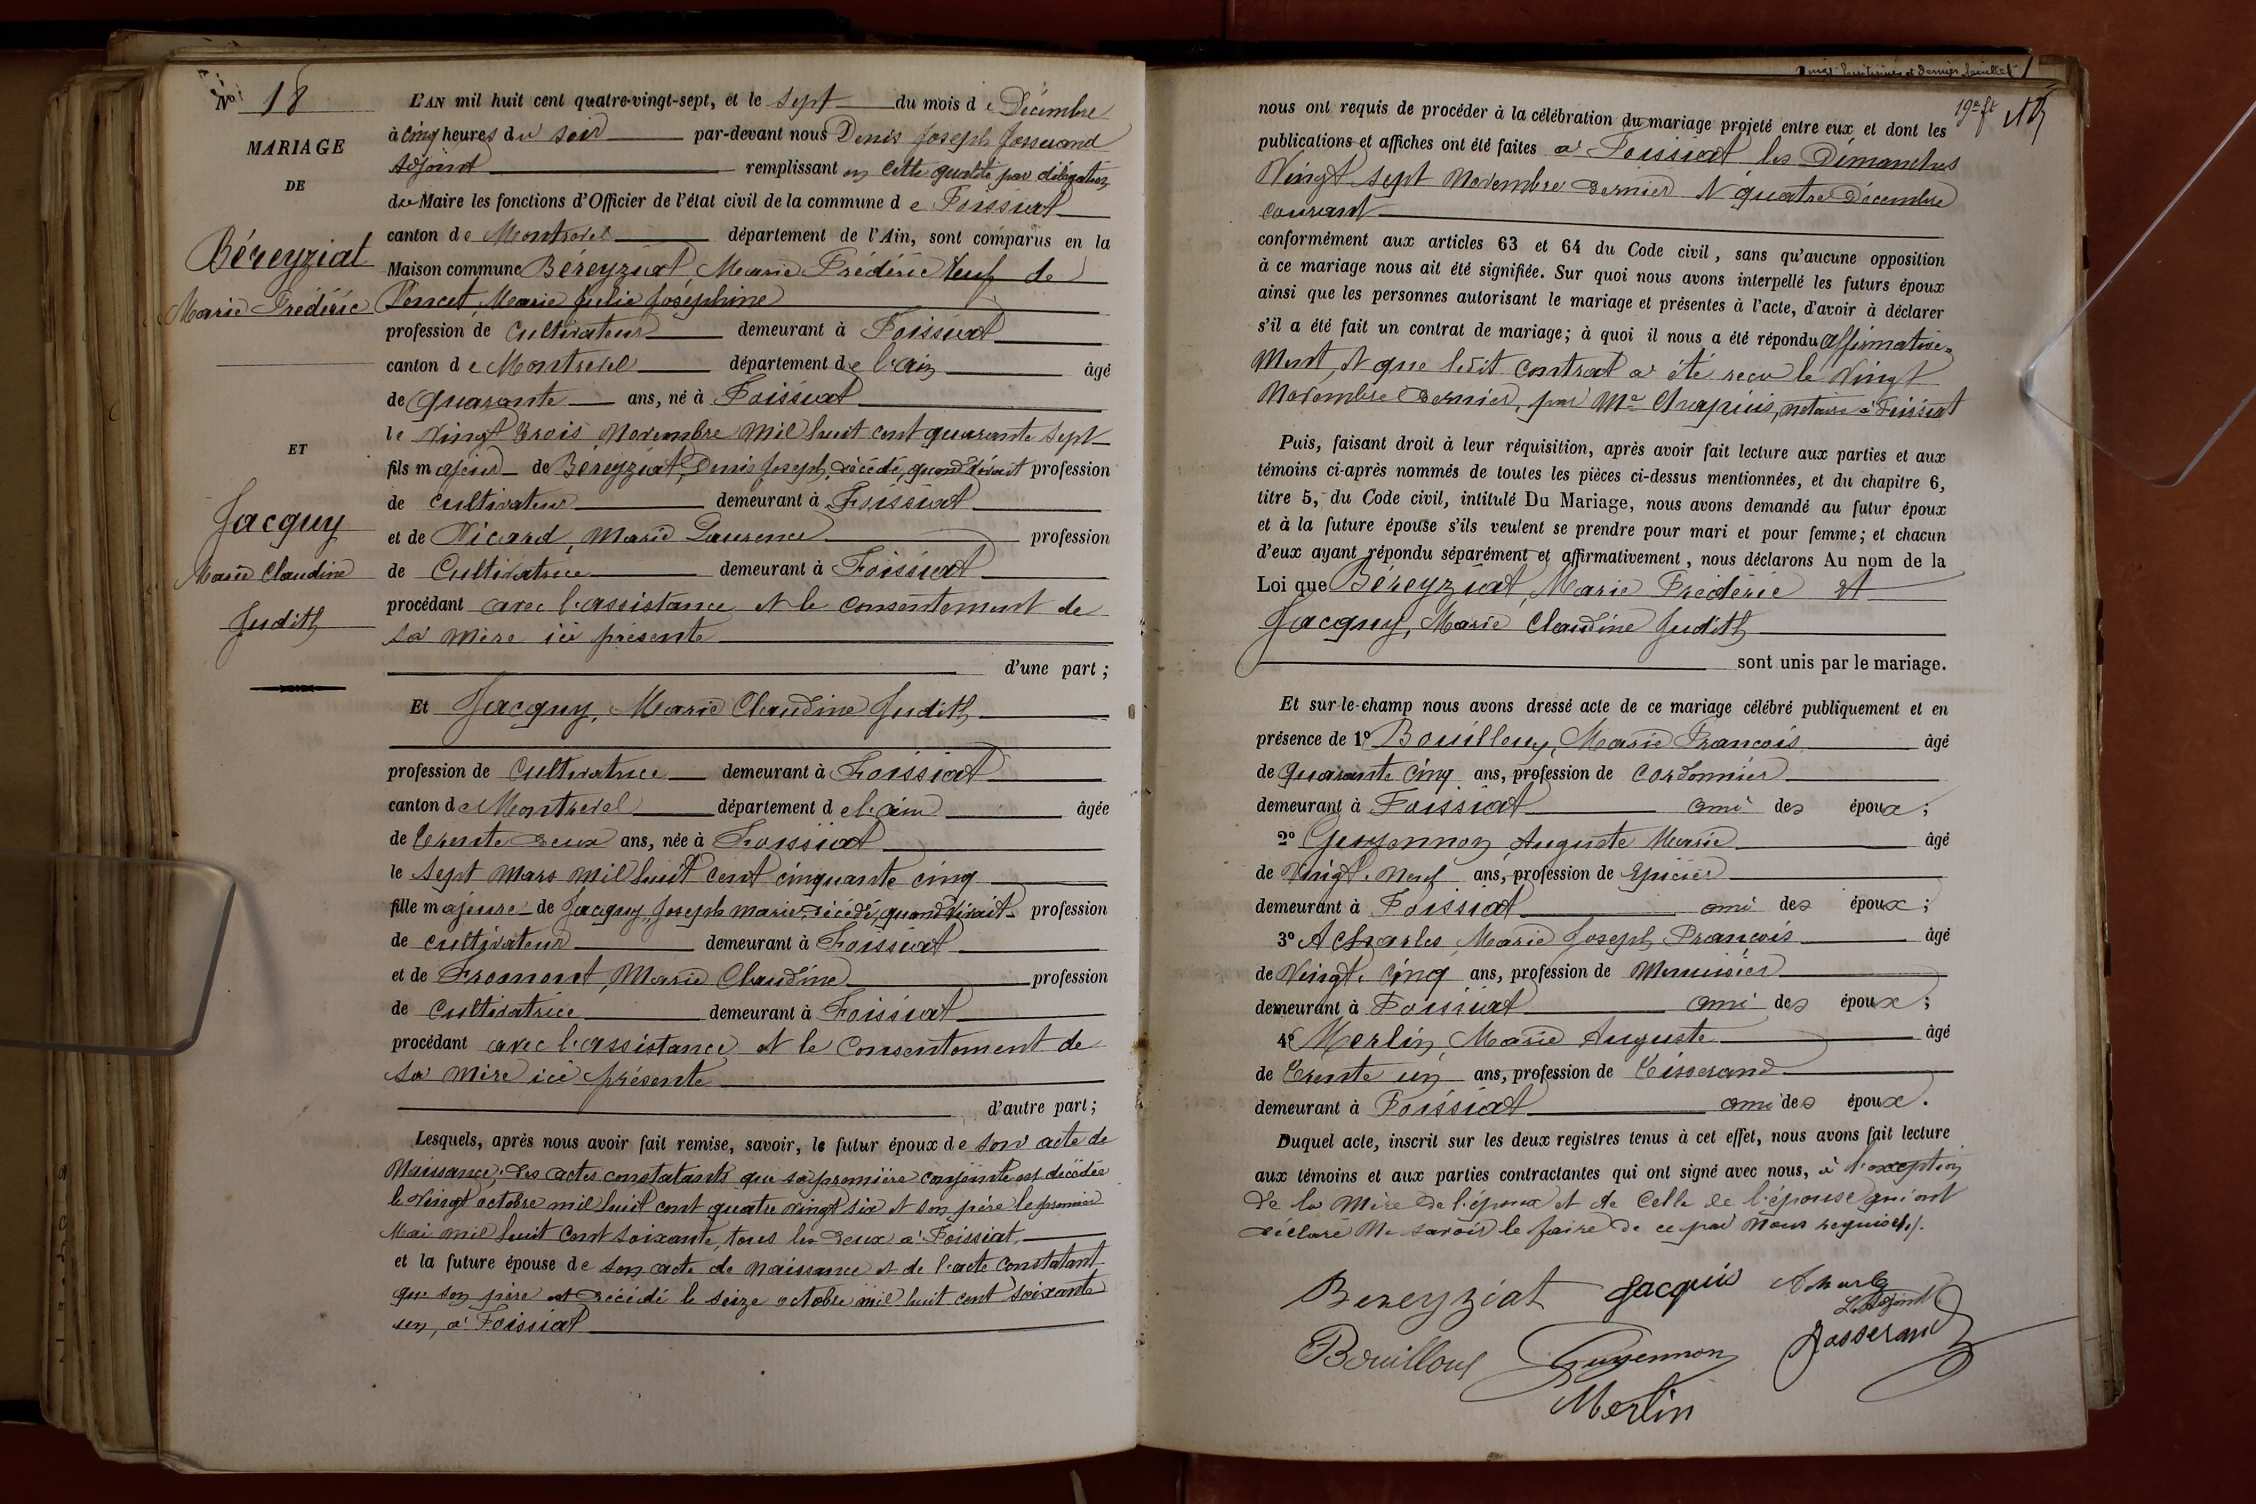 No 18
MARIAGE
DE
Béreyziat
Marie Frédéric
ET
Jacquy
Marie Claudine
Judith
L'AN mil huit cent quatre-vingt-sept, et le sept du mois de Décembre
à cinq heures du soir par-devant nous Denis Joseph Josserand
Adjoint remplissant en cette qualité par délégation
du Maire les fonctions d'Officier de l'état civil de la commune de Foissiat
canton de Montrevel département de l'Ain, sont comparus en la
Maison commune Béreyziat, Marie Frédéric Veuf de
Poncet, Marie Julie Joséphine
profession de Cultivateur demeurant à Foissiat
canton de Montrevel département de l'ain âgé
de Quarante ans, né à Foissiat
le Vingt trois Novembre mil huit cent quarante sept
fils majeur de Béreyziat, Denis Joseph, décédé, quand vivait profession
de cultivateur demeurant à Foissiat
et de Nicard, Marie Laurence profession
de Cultivatrice demeurant à Foissiat
procédant avec l'assistance et le consentement de
sa mère ici présente
d'une part;
Et Jacquy, Marie Claudine Judith
profession de Cultivatrice demeurant à Foissiat
canton de Montrevel département de l'ain âgée
de trente deux ans, née à Foissiat
le sept mars mil huit cent cinquante cinq
fille majeure de Jacquy, Joseph Marie, décédé, quand vivait profession
de cultivateur demeurant à Foissiat
et de Fromont, Marie Claudine profession
de cultivatrice demeurant à Foissiat
procédant avec l'assistance et le consentement de
sa mère ici présente
d'autre part;
Lesquels, après nous avoir fait remise, savoir, le futur époux de son acte de
Naissance; des actes constatants que sa première conjointe est décédée
le Vingt octobre mil huit cent quatre vingt six et son père le premier
Mai mil huit cent soixante, tous les deux à Foissiat.
et la future épouse de son acte de naissance et de l'acte constatant
que son père est décédé le seize octobre mil huit cent soixante
un, à Foissiat
Vingt huitième et dernier feuillet
19e ft
nous ont requis de procéder à la célébration du mariage projeté entre eux et dont les
publications et affiches ont été faites à Foissiat les Dimanches
Vingt sept Novembre dernier et quatre Décembre
courant
conformément aux articles 63 et 64 du Code civil, sans qu'aucune opposition
à ce mariage nous ait été signifiée. Sur quoi nous avons interpellé les futurs époux
ainsi que les personnes autorisant le mariage et présentes à l'acte, d'avoir à déclarer
s'il a été fait un contrat de mariage; à quoi il nous a été répondu affirmative-
ment, et que ledit contrat a été reçu le Vingt
Novembre dernier, par Me Chapuis, notaire à Foissiat
Puis, faisant droit à leur réquisition, après avoir fait lecture aux parties et aux
témoins ci-après nommés de toutes les pièces ci-dessus mentionnées, et du chapitre 6,
titre 5, du Code civil, intitulé Du Mariage, nous avons demandé au futur époux
et à la future épouse s'ils veulent se prendre pour mari et pour femme; et chacun
d'eux ayant répondu séparément et affirmativement, nous déclarons Au nom de la
Loi que Béreyziat, Marie Frédéric et
Jacquy, Marie Claudine Judith
sont unis par le mariage.
Et sur-le-champ nous avons dressé acte de ce mariage célébré publiquement et en
présence de 1o Bouilloux, Marie François âgé
de Quarante cinq ans, profession de cordonnier
demeurant à Foissiat ami des époux;
2o Guyennon, Auguste Marie âgé
de Vingt neuf ans, profession de Epicier
demeurant à Foissiat ami des époux;
3o Acharles, Marie Joseph François âgé
de Vingt cinq ans, profession de Menuisier
demeurant à Foissiat ami des époux;
4o Merlin, Marie Auguste âgé
de Trente un ans, profession de Tisserand
demeurant à Foissiat ami des époux.
Duquel acte, inscrit sur les deux registres tenus à cet effet, nous avons fait lecture
aux témoins et aux parties contractantes qui ont signé avec nous, à l'exception
de la mère de l'époux et de celle de l'épouse qui ont
déclaré ne savoir le faire de ce par nous requises./.
Bereyziat Jacquis Acharles
L'Adjoint
Bouilloux Guyennon Josserand
Merlin